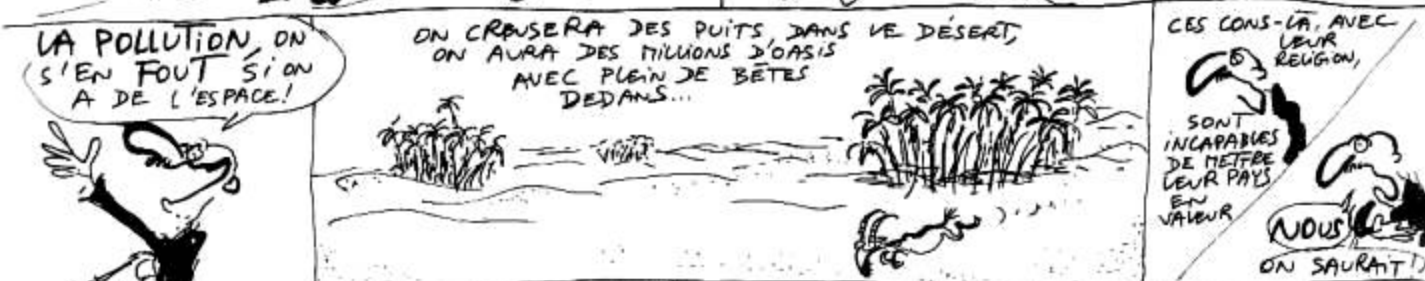 LA POLLUTION, ON
S'EN FOUT SI ON
A DE L'ESPACE!
ON CREUSERA DES PUITS, DANS LE DÉSERT,
ON AURA DES MILLIONS D'OASIS
AVEC PLEIN DE BÊTES
DEDANS...
CES CONS-LÀ, AVEC
LEUR
RELIGION,
SONT
INCAPABLES
DE METTRE
LEUR PAYS
EN
VALEUR
NOUS
ON SAURAIT!